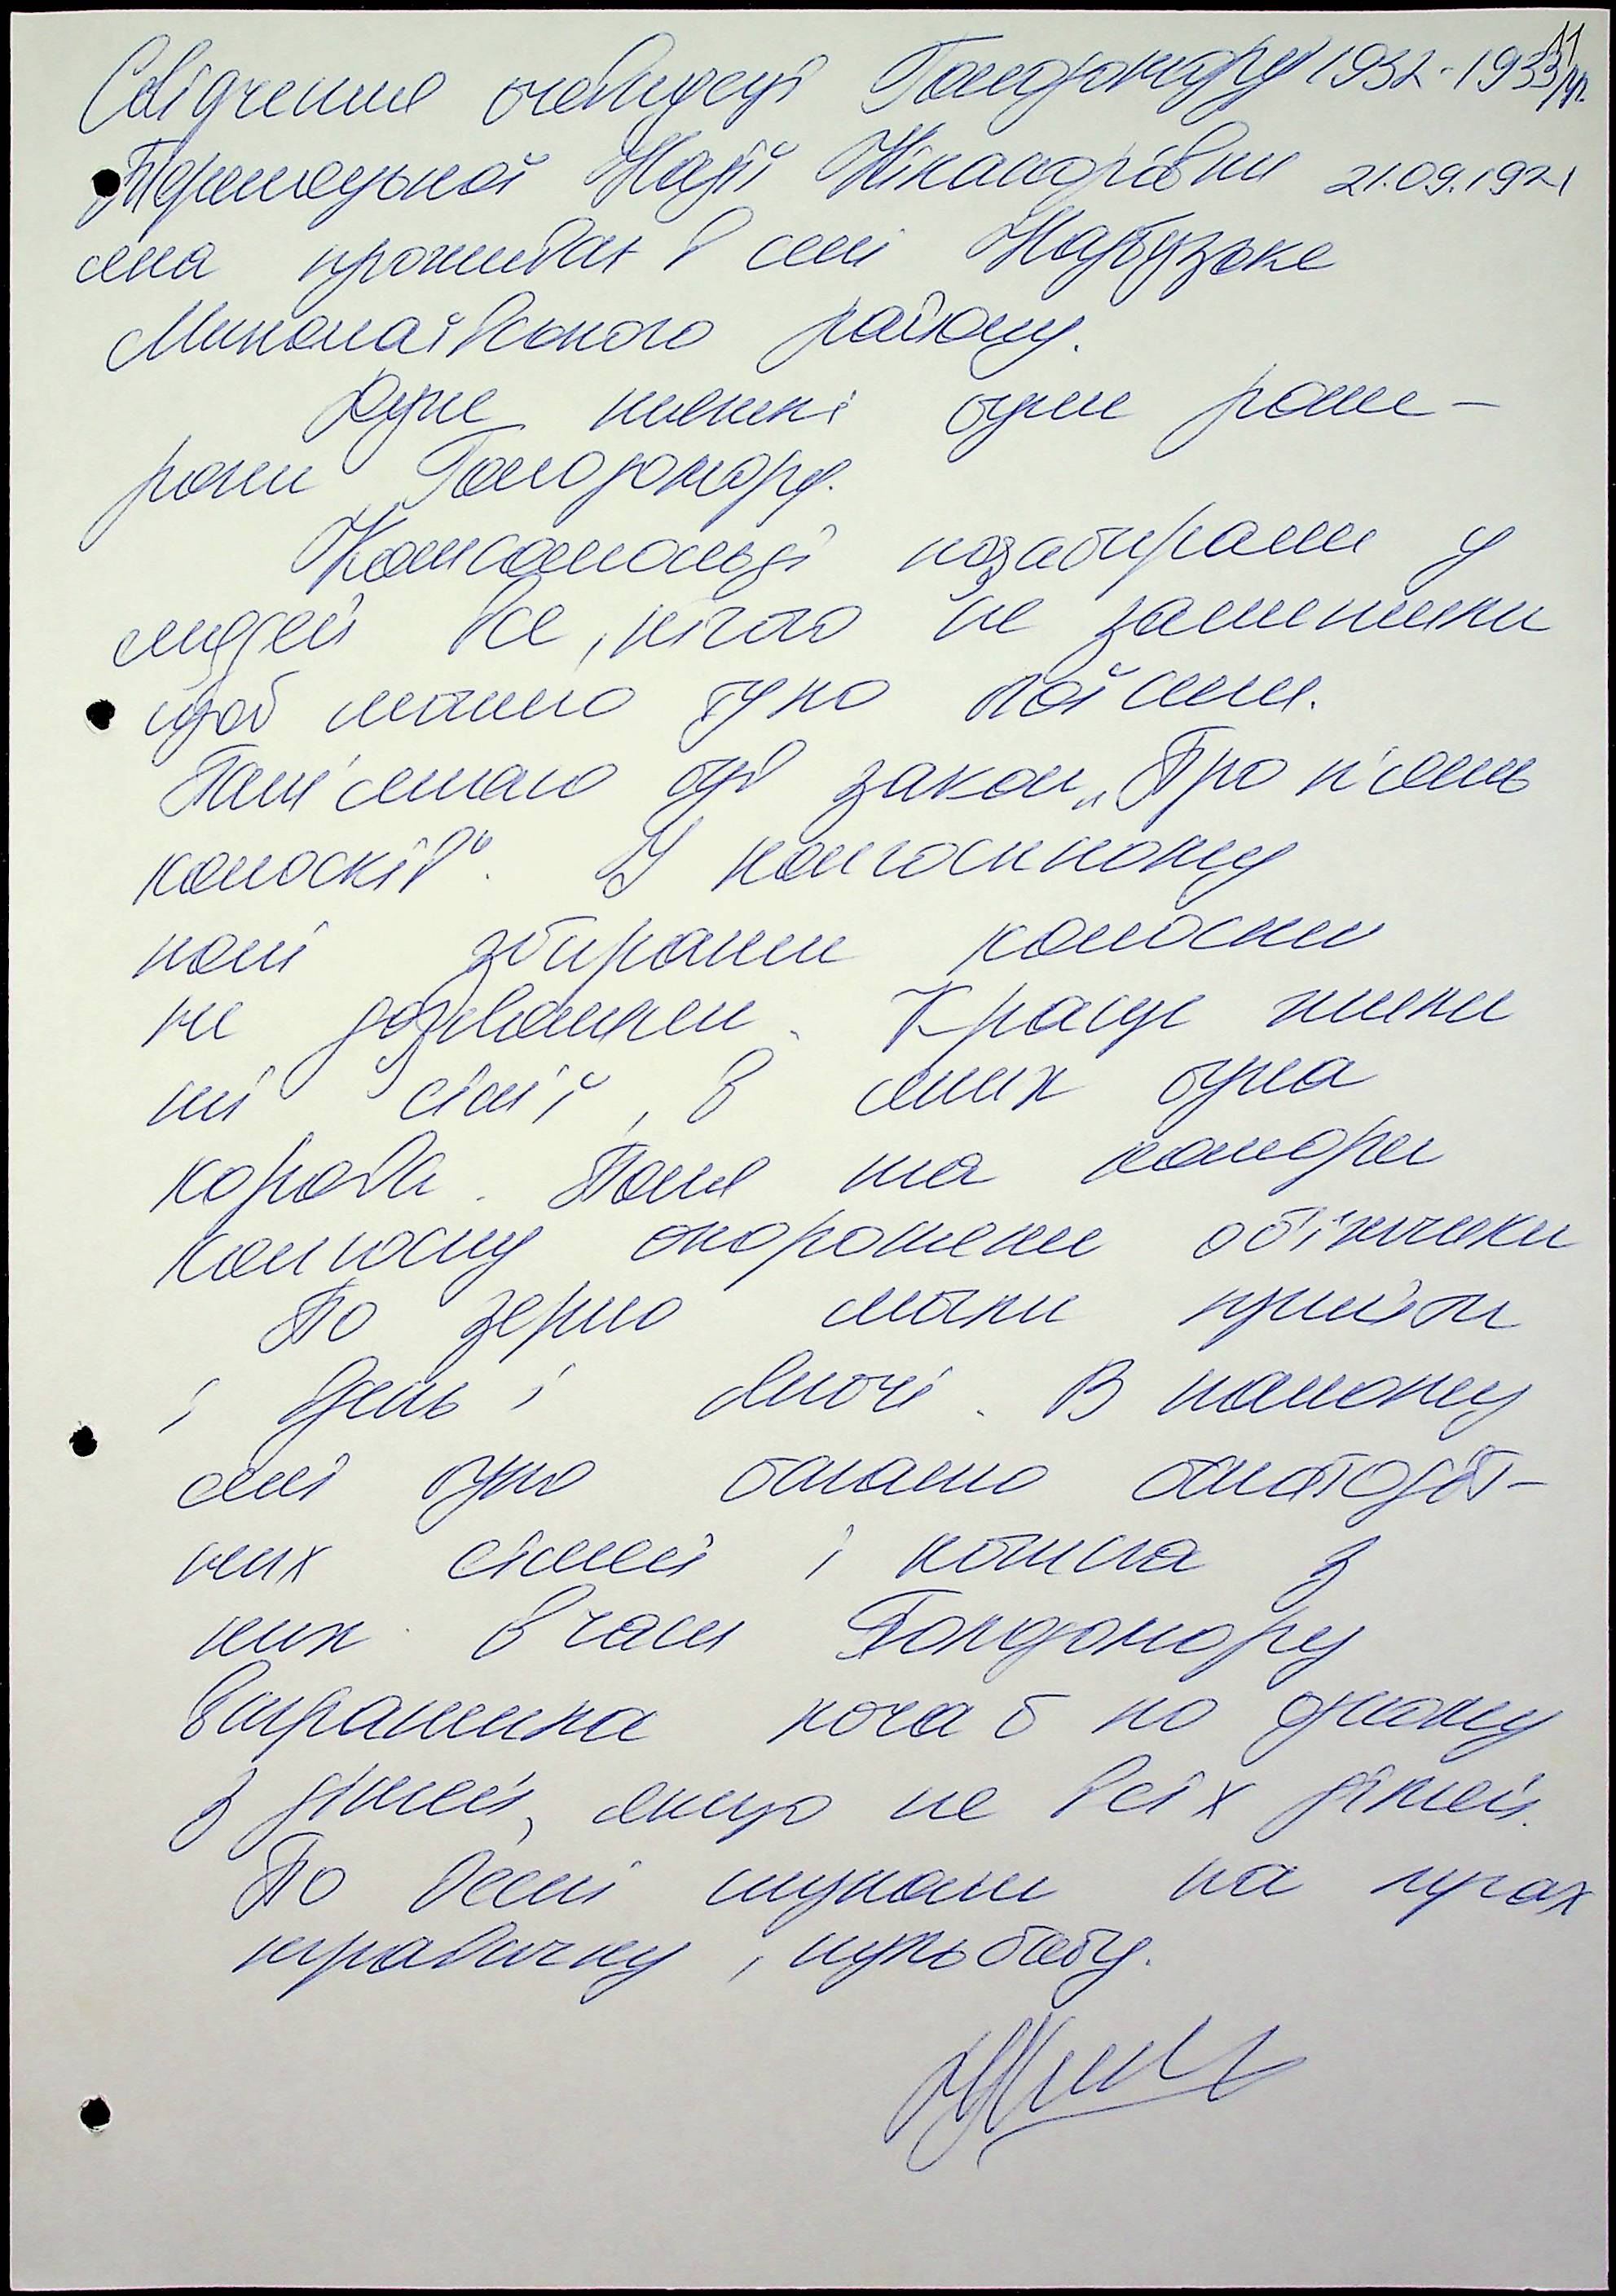 11
Свідчення очевидця Голодомору 1932-1933рр.
Надії Нікандрівни 21.09.1921
яка проживає в селі Надбузьке
Миколаївського району.
Дуже тяжкі були роки –
роки Голодомору.
Комсомольці позабирали у
людей все, нічого не залишили
щоб можно було посіяти.
Пам'ятаю був закон „Про п'ять
колосків". У колгоспному
полі збирати колоски
не дозволяли. Краще жили
ті сім'ї, в яких була
корова. Поля та комори
колгоспу охороняли об'їждчики
По зерно могли прийти
і вдень і вночі. В нашому
селі було багато багатодіт-
них сімей і кожна з
них в часи Голодомору
втратила хоча б по одному
з дітей, якщо не всіх дітей.
По весні шукали на луках
травичку, кульбабу.